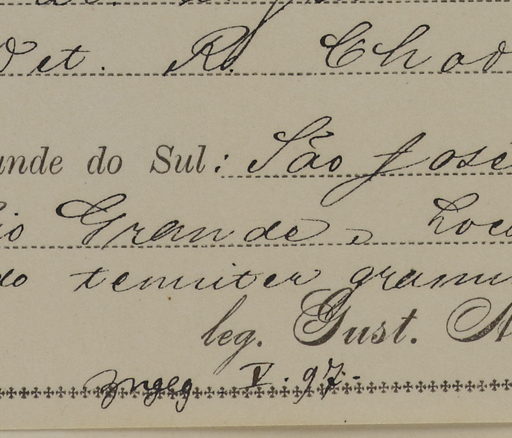 det. R. Chod
ande do Sul: São José
io Grande, Loc
do tenuiter gramin
leg. Gust. M
V. 97.